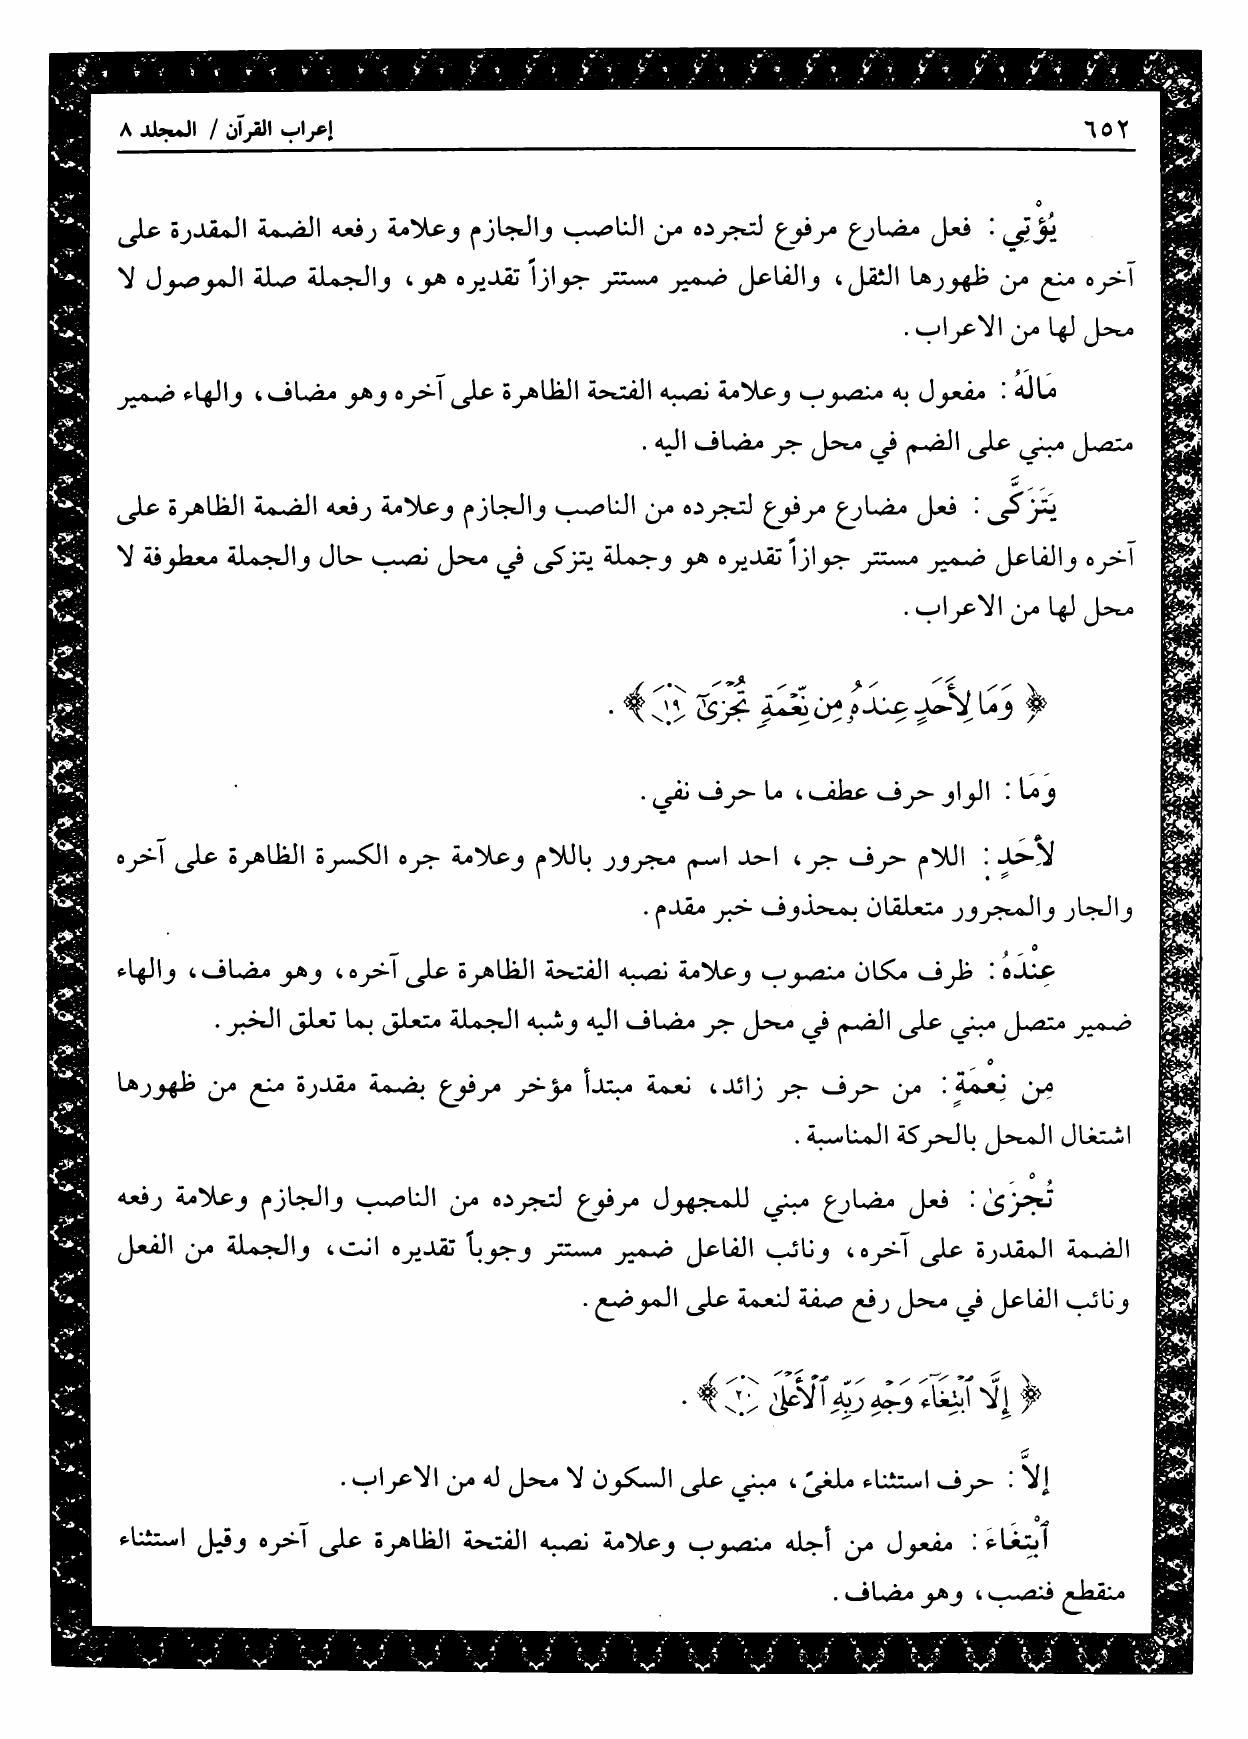 ٦٥٢
إعراب القرآن / المجلد ٨
يُؤْتِي : فعل مضارع مرفوع لتجرده من الناصب والجازم وعلامة رفعه الضمة المقدرة على
آخره منع من ظهورها الثقل، والفاعل ضمير مستتر جوازاً تقديره هو، والجملة صلة الموصول لا
محل لها من الاعراب.
مَالَهُ : مفعول به منصوب وعلامة نصبه الفتحة الظاهرة على آخره وهو مضاف، والهاء ضمير
متصل مبني على الضم في محل جر مضاف اليه.
يَتَزَكَّى : فعل مضارع مرفوع لتجرده من الناصب والجازم وعلامة رفعه الضمة الظاهرة على
آخره والفاعل ضمير مستتر جوازاً تقديره هو وجملة يتزكى في محل نصب حال والجملة معطوفة لا
محل لها من الاعراب.
﴿ وَمَا لِأَحَدٍ عِندَهُۥ مِن نِّعۡمَةٖ تُجۡزَىٰٓ ١٩ ﴾.
وَمَا : الواو حرف عطف، ما حرف نفي.
لأَحَدٍ : اللام حرف جر، احد اسم مجرور باللام وعلامة جره الكسرة الظاهرة على آخره
والجار والمجرور متعلقان بمحذوف خبر مقدم.
عِنْدَهُ : ظرف مكان منصوب وعلامة نصبه الفتحة الظاهرة على آخره، وهو مضاف، والهاء
ضمير متصل مبني على الضم في محل جر مضاف اليه وشبه الجملة متعلق بما تعلق الخبر.
مِن نِعْمَةٍ : من حرف جر زائد، نعمة مبتدأ مؤخر مرفوع بضمة مقدرة منع من ظهورها
اشتغال المحل بالحركة المناسبة.
تُجْزَىٰ : فعل مضارع مبني للمجهول مرفوع لتجرده من الناصب والجازم وعلامة رفعه
الضمة المقدرة على آخره، ونائب الفاعل ضمير مستتر وجوباً تقديره انت، والجملة من الفعل
ونائب الفاعل في محل رفع صفة لنعمة على الموضع.
﴿ إِلَّا ٱبۡتِغَآءَ وَجۡهِ رَبِّهِ ٱلۡأَعۡلَىٰ ٢٠ ﴾.
إلاَّ : حرف استثناء ملغىً، مبني على السكون لا محل له من الاعراب.
ٱبْتِغَاءَ : مفعول من أجله منصوب وعلامة نصبه الفتحة الظاهرة على آخره وقيل استثناء
منقطع فنصب، وهو مضاف.